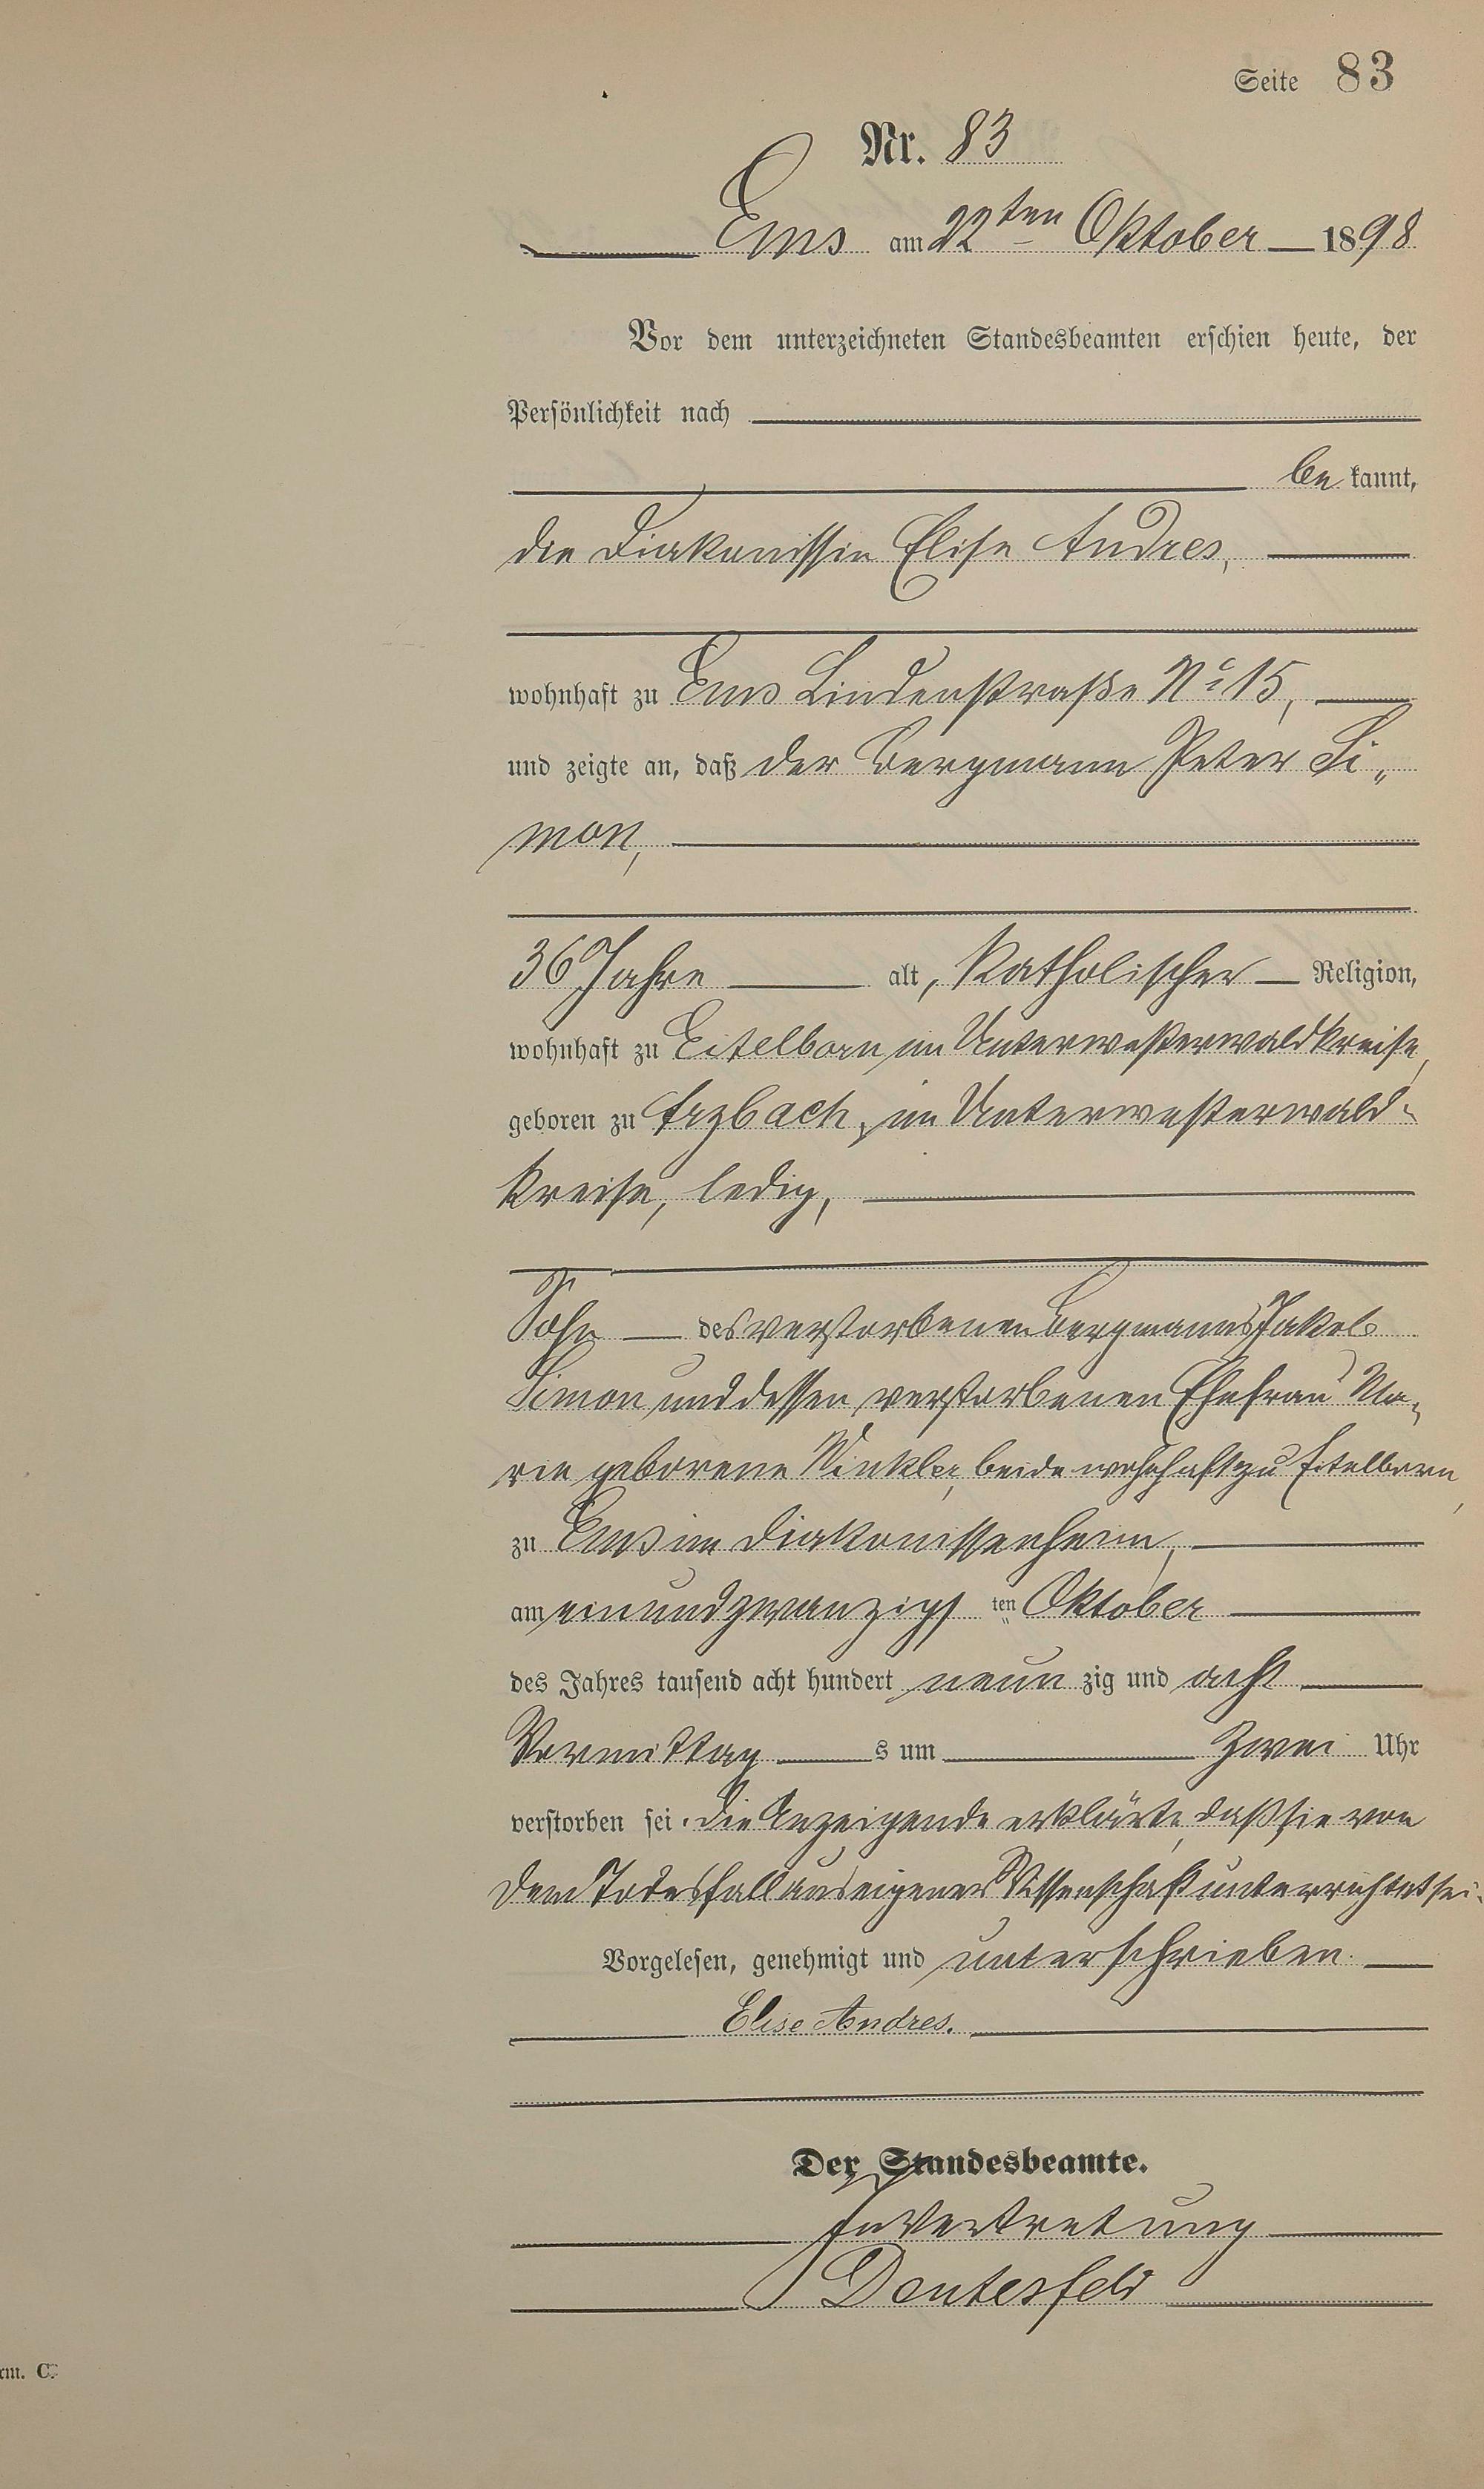 Seite 83
Nr. 83
Ems am 22ten Oktober 1898
Vor dem unterzeichneten Standesbeamten erschien heute, der
Persönlichkeit nach
be kannt,
die Diakonissin Elise Andres,
wohnhaft zu Ems Lindenstraße No 15,
und zeigte an, daß der Bergmann Peter Si„
mon,
36 Jahre alt, katholischer Religion,
wohnhaft zu Eitelborn im Unterwesterwaldkreise,
geboren zu Arzbach, im Unterwesterwald-
kreise, ledig,
Sohn des verstorbenen Bergmanns Jakob
Simon und dessen verstorbenen Ehefrau Ma-
rie geborene Winkler, beide wohnhaft zu Eitelborn,
zu Ems im Diakonissenheim,
am einundzwanzigs ten Oktober
des Jahres tausend acht hundert neun zig und acht
Vormittag s um zwei Uhr
verstorben sei. Die Anzeigende erklärte, daß sie von
dem Todesfall aus eigener Wissenschaft unterrichtet sei.
Vorgelesen, genehmigt und unterschrieben.
Elise Andres.
Der Standesbeamte.
In Vertretung
rm. C.